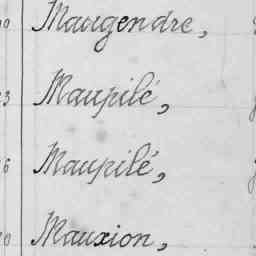 Maugendre,
Maupilé,
Maupilé,
Mauxion,